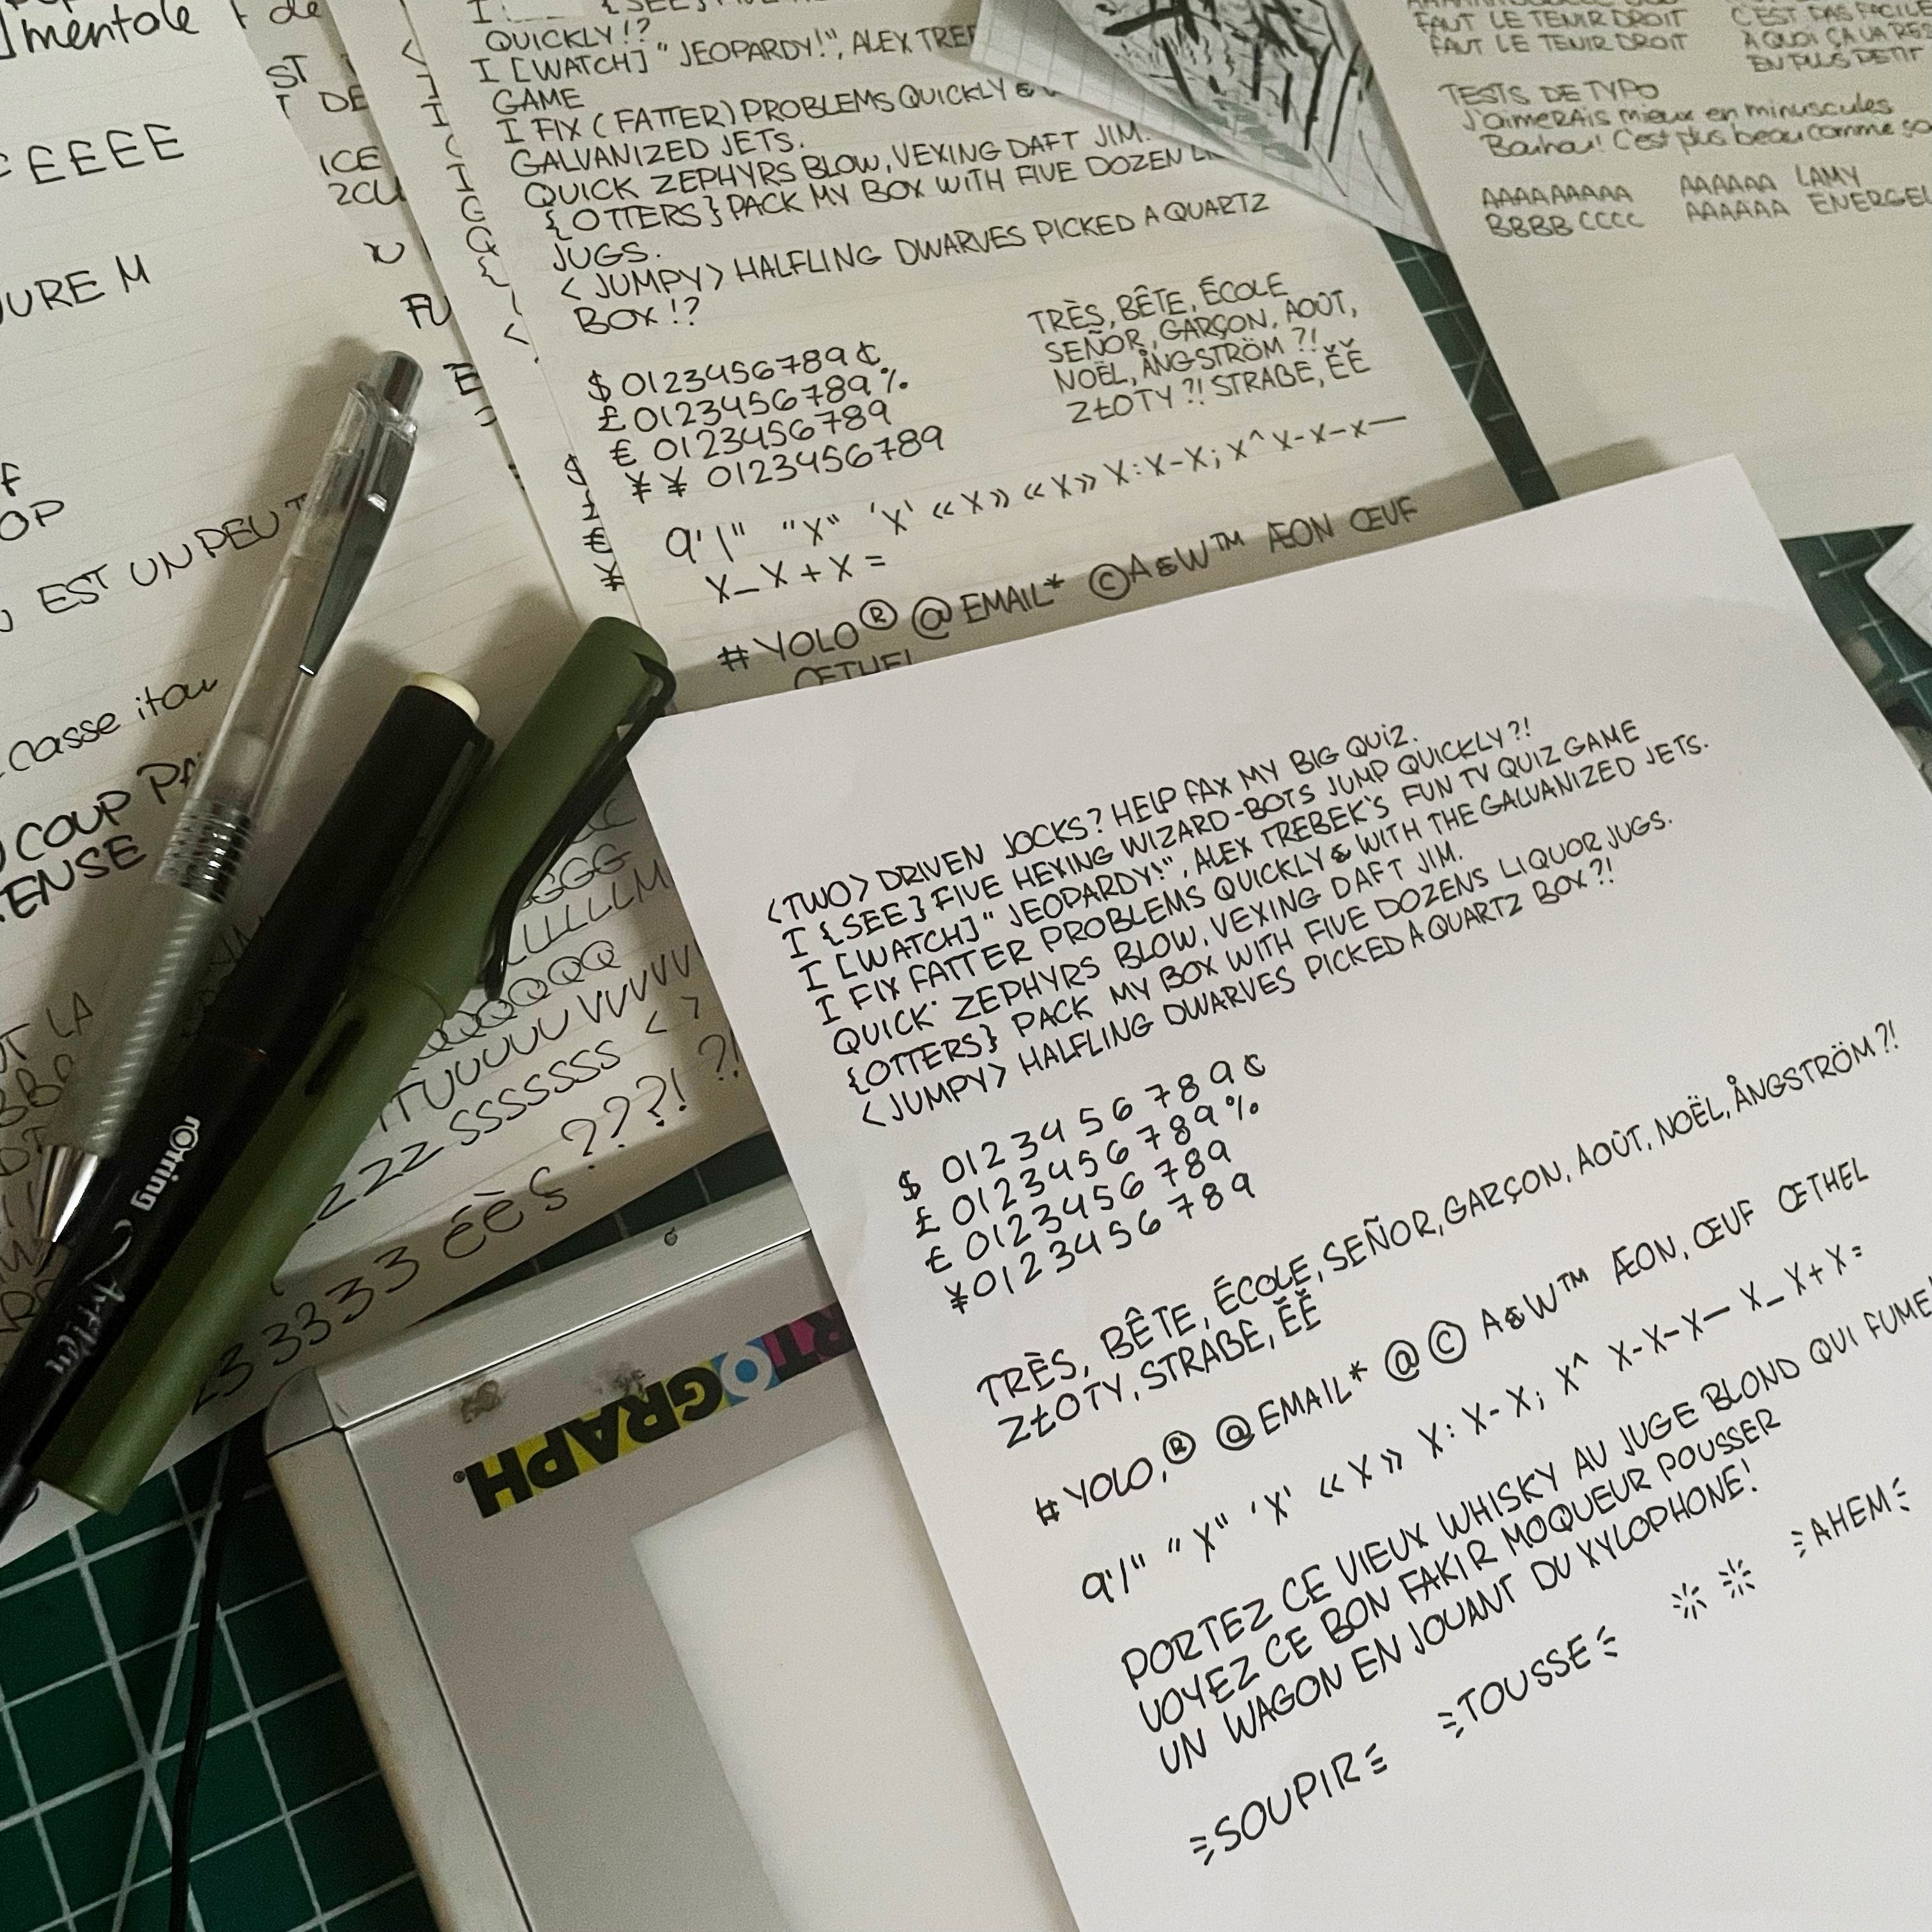 ]mentale
de
ST
DE
EEEEE
ICE
2CU
URE M
FU
OP
EST UN PEU T
casse itou
COUP PA
TENSE
QUICKLY!?
I [WATCH] "JEOPARDY!", ALEX TREB
GAME
I FIX (FATTER) PROBLEMS QUICKLY &
GALVANIZED JETS.
QUICK ZEPHYRS BLOW, VEXING DAFT JIM.
{OTTERS} PACK MY BOX WITH FIVE DOZEN LI
JUGS.
<JUMPY> HALFLING DWARVES PICKED A QUARTZ
BOX!?
$ 0123456789 ¢
£ 0123456789 %
€ 0123456789
¥ ¥ 0123456789
TRÈS, BÊTE, ÉCOLE
SEÑOR, GARÇON, AOÛT,
NOËL, ÅNGSTRÖM ?!
ZŁOTY ?! STRAßE, ĒĚ
9'1" "X" 'X' «X» «X» X:X-X; X^ X-X-X—
X_X+X=
#YOLO® @EMAIL* ©A&W™ ÆON ŒUF
ŒTHEL
FAUT LE TENIR DROIT
FAUT LE TENIR DROIT
C'EST PAS FACILE
À QUOI ÇA VA RES
EN PLUS PETIT
TESTS DE TYPO
J'aimerais mieux en minuscules
Bouhou! C'est plus beau comme
AAAAAAAAA
BBBB CCCC
AAAAAA LAMY
AAAAAA ENERGEL
<TWO> DRIVEN JOCKS? HELP FAX MY BIG QUIZ.
I {SEE} FIVE HEXING WIZARD-BOTS JUMP QUICKLY?!
I [WATCH] "JEOPARDY!", ALEX TREBEK'S FUN TV QUIZ GAME
I FIX FATTER PROBLEMS QUICKLY & WITH THE GALVANIZED JETS.
QUICK ZEPHYRS BLOW, VEXING DAFT JIM.
{OTTERS} PACK MY BOX WITH FIVE DOZENS LIQUOR JUGS.
<JUMPY> HALFLING DWARVES PICKED A QUARTZ BOX?!
$ 0123456789 ¢
£ 0123456789 %
€ 0123456789
¥ 0123456789
TRÈS, BÊTE, ÉCOLE, SEÑOR, GARÇON, AOÛT, NOËL, ÅNGSTRÖM?!
ZŁOTY, STRAßE, ĒĚ
#YOLO,® @EMAIL* @ © A&W™ ÆON, ŒUF ŒTHEL
9'1" "X" 'X' «X» X: X-X; X^ X-X-X— X_X+X=
PORTEZ CE VIEUX WHISKY AU JUGE BLOND QUI FUME!
VOYEZ CE BON FAKIR MOQUEUR POUSSER
UN WAGON EN JOUANT DU XYLOPHONE!
SOUPIR TOUSSE AHEM
GGG
LLLLLLM
QQQQQ
TTUUUUU VVVVVV
ZZZZ SSSSSSS < >
33333 éèş ???! ?!
rOtring
Artpen
RTOGRAPH